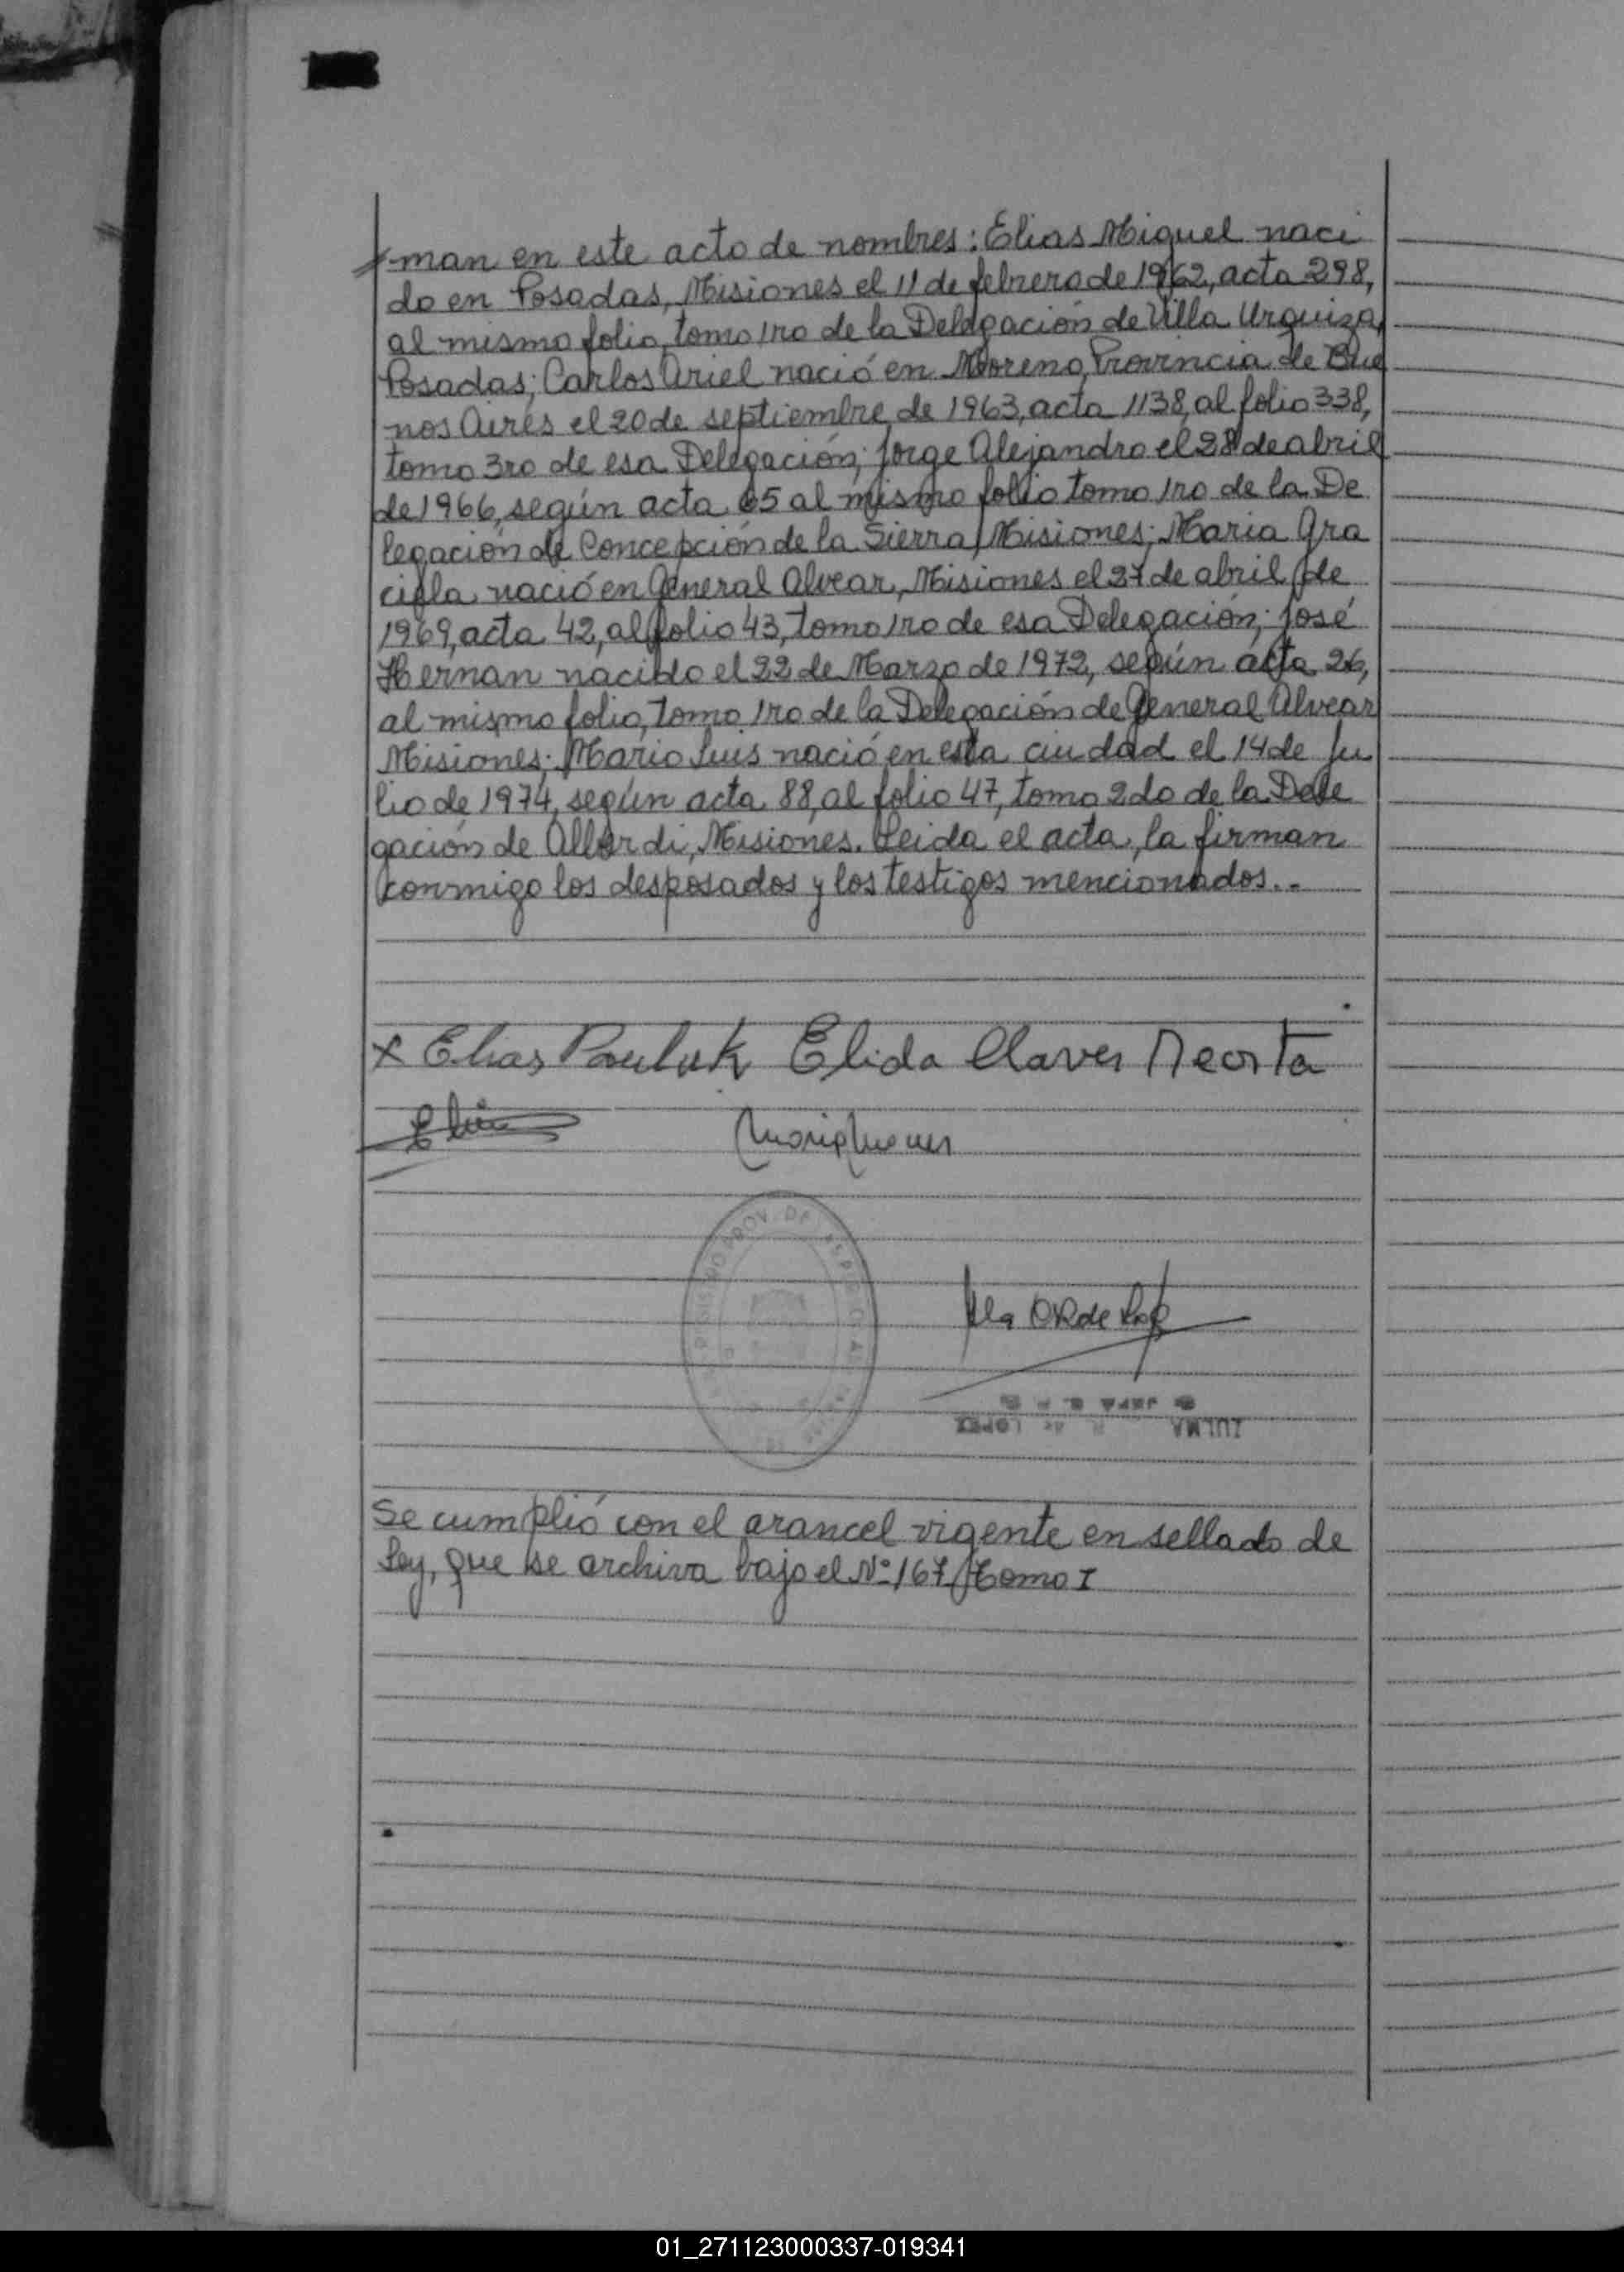 man en este acto de nombres: Elias Miguel naci
do en Posadas, Misiones el 11 de febrero de 1962, acta 298,
al mismo folio, tomo 1ro de la Delegación de Villa Urquiza,
Posadas; Carlos Ariel nació en Moreno, Provincia de Bue
nos Aires el 20 de septiembre de 1963, acta 1138, al folio 338,
tomo 3ro de esa Delegación; Jorge Alejandro el 28 de abril
de 1966, según acta 65 al mismo folio tomo 1ro de la De
legación de Concepción de la Sierra, Misiones; Maria Gra
ciela nació en General Alvear, Misiones el 27 de abril de
1969, acta 42, al folio 43, tomo 1ro de esa Delegación; José
Hernan nacido el 22 de Marzo de 1972, según acta 26,
al mismo folio, tomo 1ro de la Delegación de General Alvear
Misiones; Mario Luis nació en esta ciudad el 14 de Ju
lio de 1974, según acta 88, al folio 47, tomo 2do de la Dele
gación de Alberdi, Misiones. Leida el acta, la firman
conmigo los desposados y los testigos mencionados..-
x Elias Pauluk Elida Claver Acosta
REGISTRO PROV. DE
ZULMA R de LOPEZ
JEFA
Se cumplió con el arancel vigente en sellado de
Ley, que se archiva bajo el Nº 167 Tomo I
01_271123000337-019341